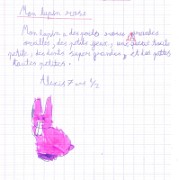 Mon lapin rose
Mon lapin a des poils roses, grandes
oreilles, des petits yeux, une queue toute
petite, des dents super grandes, et les pattes
toutes petites.
Alexis 7 ans 1/2